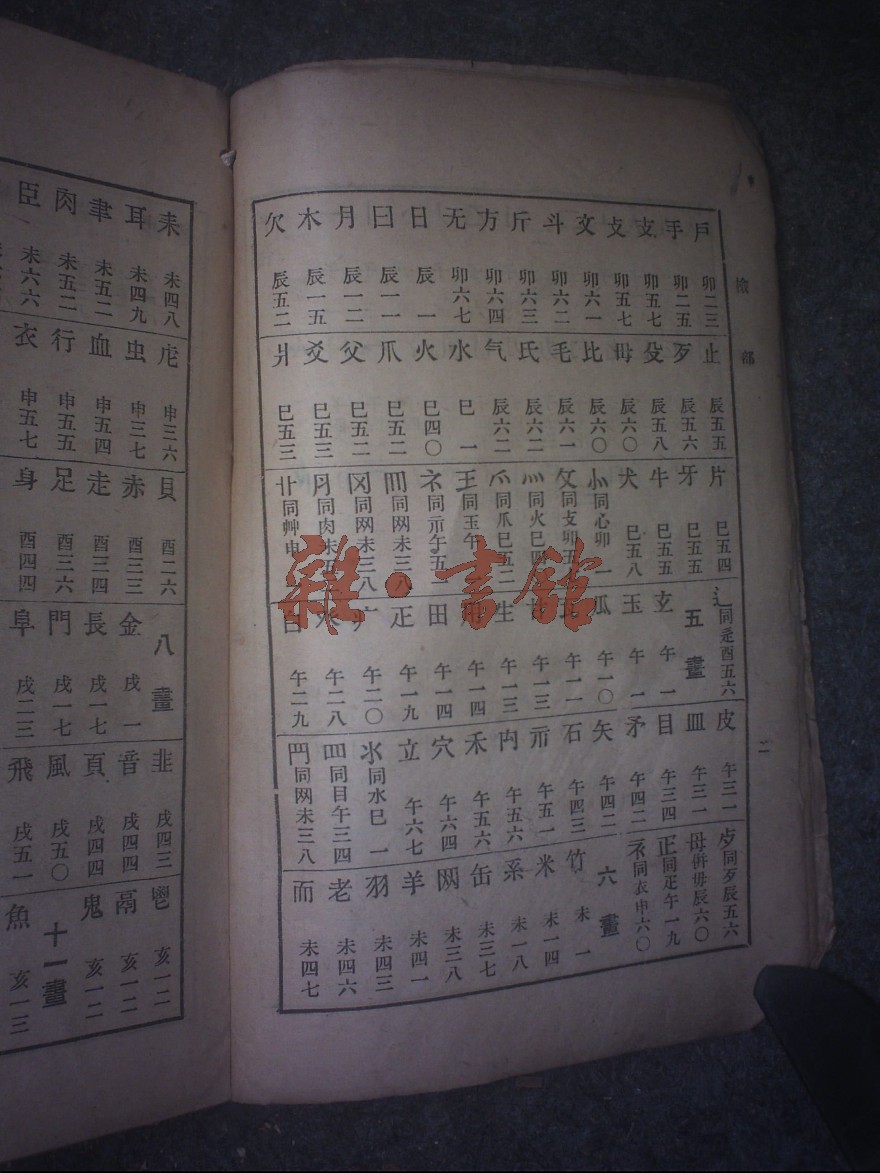 檢部
二
戶 卯二三
手 卯二五
支 卯五七
攴 卯五七
文 卯六一
斗 卯六二
斤 卯六三
方 卯六四
无 卯六七
日 辰一
曰 辰一一
月 辰一二
木 辰一五
欠 辰五二
止 辰五五
歹 辰五六
殳 辰五八
毋 辰六〇
比 辰六〇
毛 辰六一
氏 辰六二
气 辰六二
水 巳一
火 巳四〇
爪 巳五二
父 巳五二
爻 巳五三
爿 巳五三
片 巳五四
牙 巳五五
牛 巳五五
犬 巳五八
㣺同心卯一
攵同攴卯五
灬同火巳四
爫同爪巳五二
王同玉午
礻同示午五一
罒同网未三八
冈同网未三八
月同肉未五
艹同艸申
辶同辵酉五六
五畫
玄 午一
玉 午一
瓜 午一〇
瓦 午一一
甘 午一三
生 午一三
用 午一四
田 午一四
疋 午一九
疒 午二〇
癶 午二八
白 午二九
皮 午三一
皿 午三一
目 午三四
矛 午四二
矢 午四二
石 午四三
示 午五一
禸 午五六
禾 午五六
穴 午六四
立 午六七
氺同水巳一
罒同目午三四
罓同网未三八
歺同歹辰五六
母併毋辰六〇
𤴔同疋午一九
衤同衣申六〇
六畫
竹 未一
米 未一四
糸 未一八
缶 未三七
网 未三八
羊 未四一
羽 未四三
老 未四六
而 未四七
耒 未四八
耳 未四九
聿 未五二
肉 未五二
臣 未六六
虍 申三六
虫 申三七
血 申五四
行 申五五
衣 申五七
貝 酉二六
赤 酉三三
走 酉三四
足 酉三六
身 酉四四
八畫
金 戌一
長 戌一七
門 戌一七
阜 戌二三
韭 戌四三
音 戌四四
頁 戌四四
風 戌五〇
飛 戌五一
鬯 亥一二
鬲 亥一二
鬼 亥一二
十一畫
魚 亥一三
雜·書館